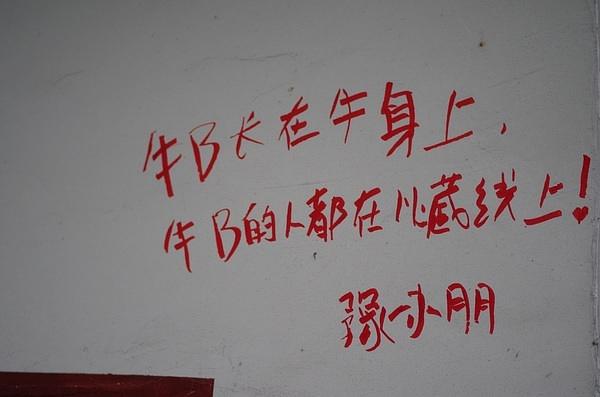 牛B长在牛身上,
牛B的人都在川藏线上!
小朋